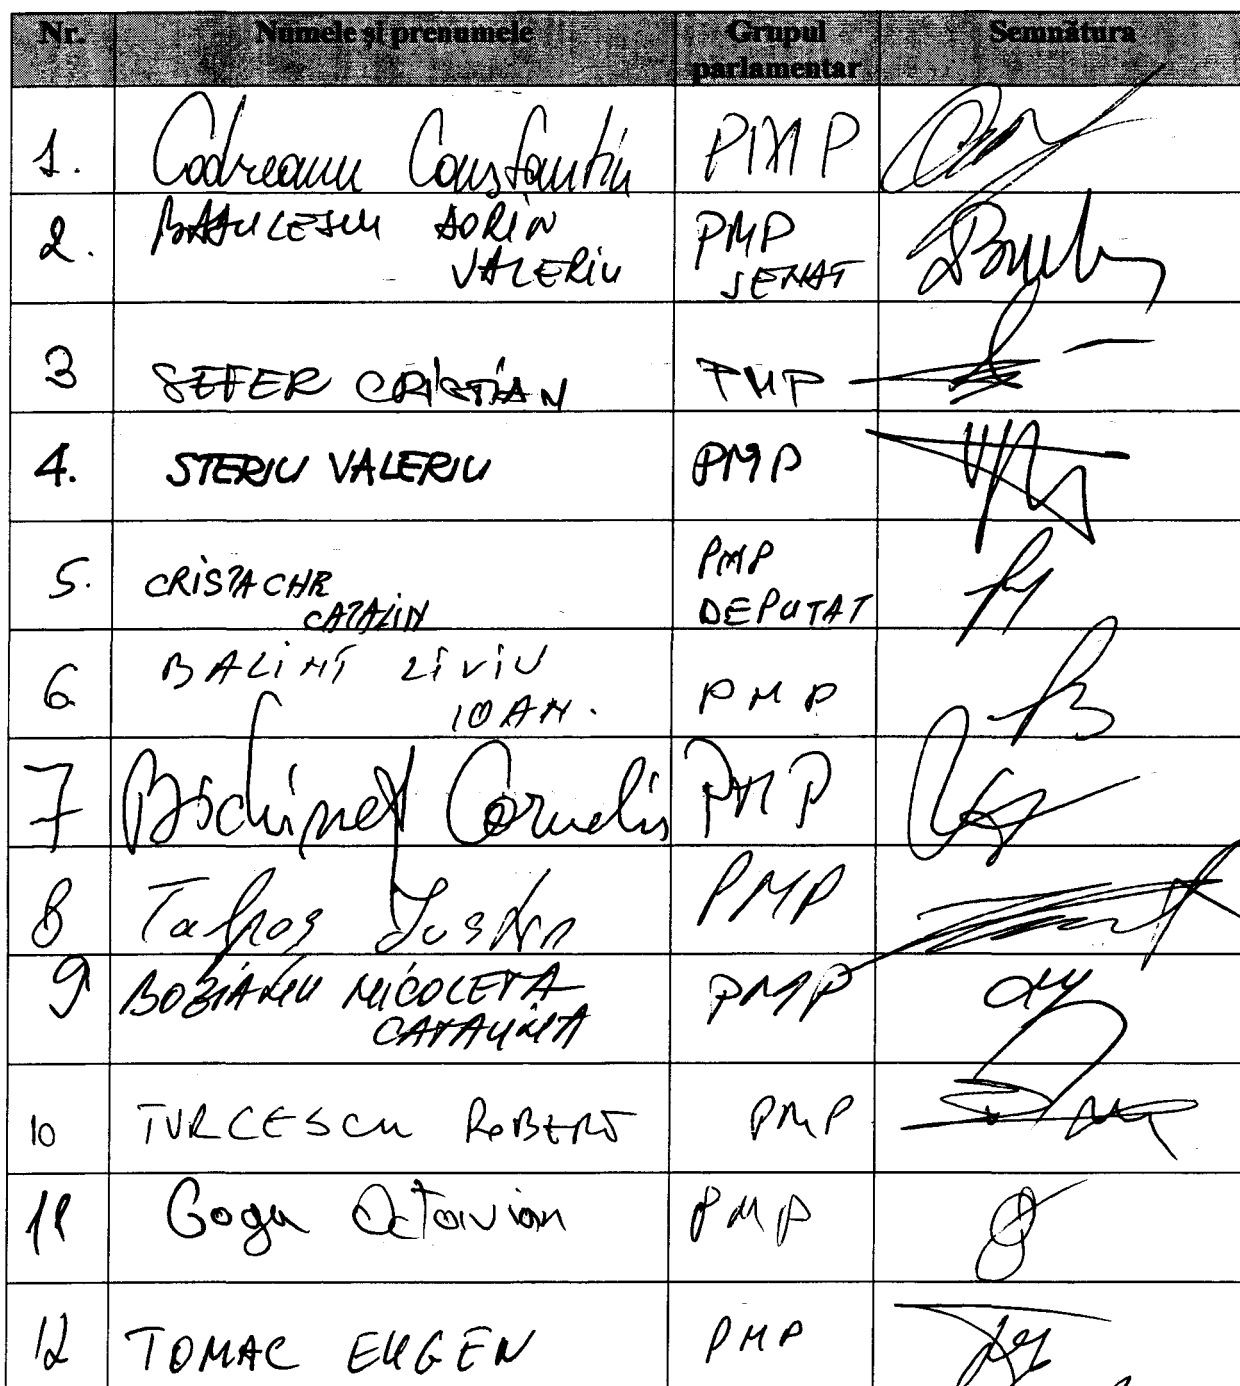 Nr. Numele și prenumele Grupul parlamentar Semnătura
1. Codreanu Constantin PMP
2. SORIN PMP
VALERIU SENAT
3 SEFER CRISTIAN PMP
4. STERIU VALERIU PMP
5. CRISTACHE PMP
CATALIN DEPUTAT
6 BALINT LIVIU
IOAN. PMP
7 Bichineț Corneliu PMP
8 Talpoș Iustin PMP
9 BOBIANU NICOLETA PMP
CATALINA
10 TURCESCU ROBERT PMP
11 Goga Octavian PMP
12 TOMAC EUGEN PMP